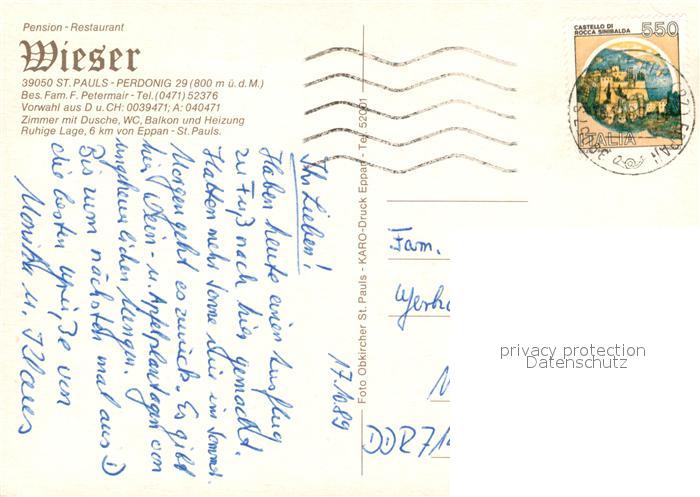 Pension - Restaurant
Wieser
39050 ST. PAULS - PERDONIG 29 (800 m ü. d. M.)
Bes. Fam. F. Petermair - Tel. (0471) 52376
Vorwahl aus D u. CH: 0039471; A: 040471
Zimmer mit Dusche, WC, Balkon und Heizung
Ruhige Lage, 6 km von Eppan - St. Pauls.
CASTELLO DI
ROCCA SINIBALDA
550
ITALIA
Ihr Lieben!
Haben heute einen Ausflug
zu Fuß nach hier gemacht.
Hatten mehr Sonne wie im Sommer.
Morgen geht es zurück. Es gibt
hier Wein- u. Apfelplantagen von
ungeheuerlichen Mengen.
Bis zum nächsten mal aus D
die besten Grüße von
Monika u. Klaus
17.10.89
Foto Obkircher St. Pauls - KARO-Druck Eppan - Tel. 52001
Fam.
DDR 71
privacy protection
Datenschutz